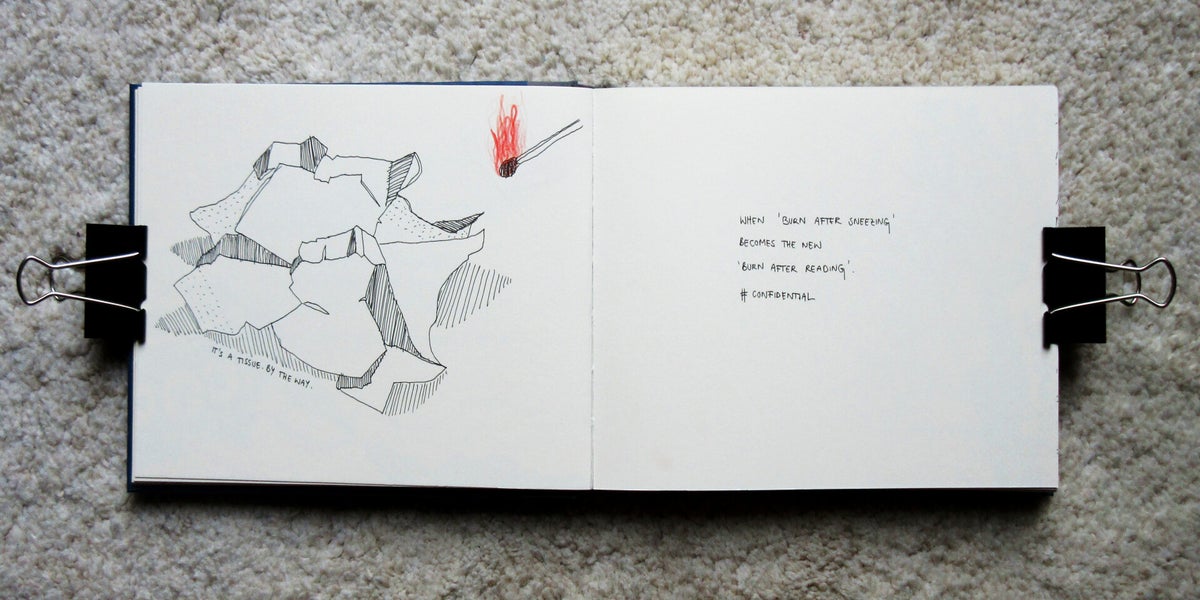 IT'S A TISSUE. BY THE WAY.
WHEN 'BURN AFTER SNEEZING'
BECOMES THE NEW
'BURN AFTER READING'.
# CONFIDENTIAL